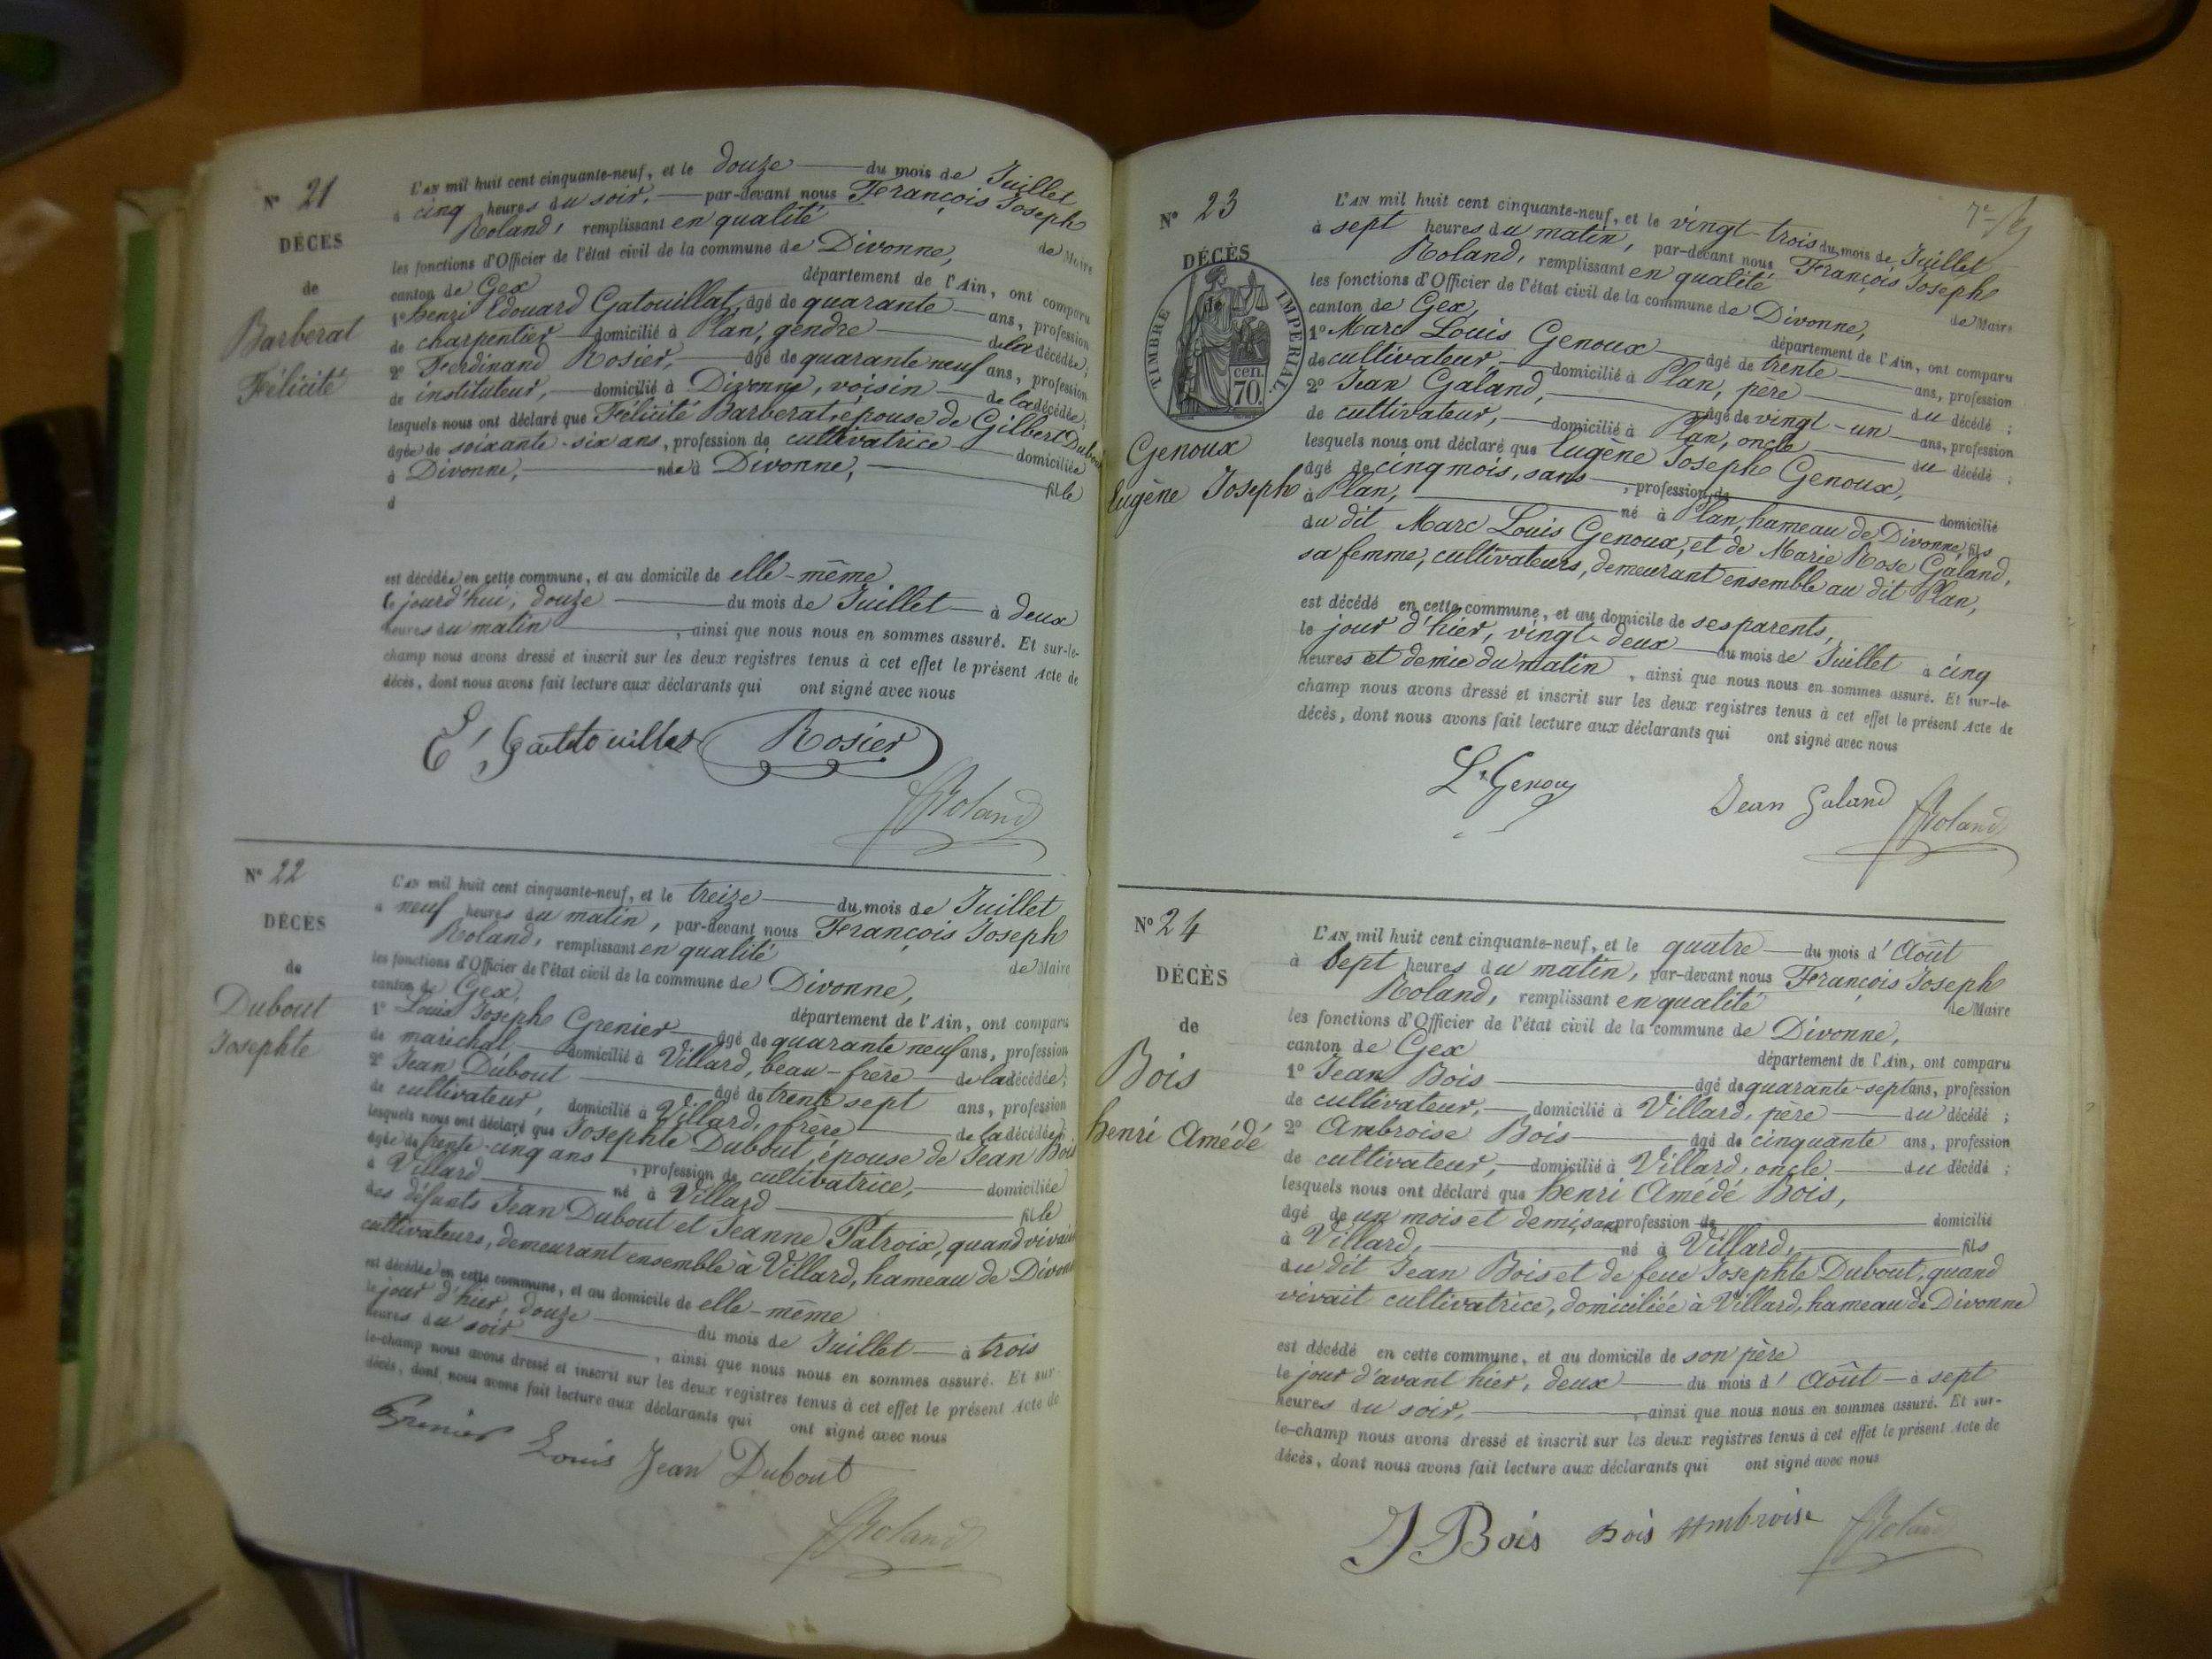 N° 21
DÉCÈS
de
Barberat
Félicité
L'AN mil huit cent cinquante-neuf, et le douze du mois de Juillet
à cinq heures du soir, par-devant nous François Joseph
Roland, remplissant en qualité de Maire
les fonctions d'Officier de l'état civil de la commune de Divonne,
canton de Gex département de l'Ain, ont comparu
1° henri Edouard Gatouillat, âgé de quarante ans, profession
de charpentier domicilié à Plan, gendre de la décédée;
2° Ferdinand Rosier, âgé de quarante neuf ans, profession
de instituteur, domicilié à Divonne, voisin de la décédée;
lesquels nous ont déclaré que Félicité Barberat, épouse de Gilbert Dubout
âgée de soixante-six ans, profession de cultivatrice domiciliée
à Divonne, née à Divonne, fille
d
est décédée en cette commune, et au domicile de elle-même
le jourd'hui, douze du mois de Juillet à deux
heures du matin, ainsi que nous nous en sommes assuré. Et sur-le-
champ nous avons dressé et inscrit sur les deux registres tenus à cet effet le présent Acte de
décès, dont nous avons fait lecture aux déclarants qui ont signé avec nous
Rosier
Roland
N° 22
DÉCÈS
de
Dubout
Josephte
L'AN mil huit cent cinquante-neuf, et le treize du mois de Juillet
à neuf heures du matin, par-devant nous François Joseph
Roland, remplissant en qualité de Maire
les fonctions d'Officier de l'état civil de la commune de Divonne,
canton de Gex, département de l'Ain, ont comparu
1° Louis Joseph Grenier âgé de quarante neuf ans, profession
de maréchal domicilié à Villard, beau-frère de la décédée;
2° Jean Dubout âgé de trente sept ans, profession
de cultivateur, domicilié à Villard, frère de la décédée;
lesquels nous ont déclaré que Josephte Dubout, épouse de Jean Bois
âgée de trente-cinq ans, profession de cultivatrice, domiciliée
à Villard né à Villard fille
des défunts Jean Dubout et Jeanne Patroix, quand vivaient
cultivateurs, demeurant ensemble à Villard, hameau de Divonne
est décédée en cette commune, et au domicile de elle-même
le jour d'hier, douze du mois de Juillet à trois
heures du soir, ainsi que nous nous en sommes assuré. Et sur-
le-champ nous avons dressé et inscrit sur les deux registres tenus à cet effet le présent Acte de
décès, dont nous avons fait lecture aux déclarants qui ont signé avec nous
Grenier Louis Jean Dubout
Roland
N° 23
DÉCÈS
de
TIMBRE IMPERIAL
70 cen.
Genoux
Eugène Joseph
L'AN mil huit cent cinquante-neuf, et le vingt-trois du mois de Juillet
à sept heures du matin, par-devant nous François Joseph
Roland, remplissant en qualité de Maire
les fonctions d'Officier de l'état civil de la commune de Divonne,
canton de Gex, département de l'Ain, ont comparu
1° Marc Louis Genoux âgé de trente ans, profession
de cultivateur, domicilié à Plan, père du décédé;
2° Jean Galand, âgé de vingt-un ans, profession
de cultivateur, domicilié à Plan, oncle du décédé;
lesquels nous ont déclaré que Eugène Joseph Genoux,
âgé de cinq mois, sans, profession de domicilié
à Plan, né à Plan, hameau de Divonne, fils
du dit Marc Louis Genoux, et de Marie Rose Galand,
sa femme, cultivateurs, demeurant ensemble au dit Plan,
est décédé en cette commune, et au domicile de ses parents,
le jour d'hier, vingt-deux du mois de Juillet à cinq
heures et demie du matin, ainsi que nous nous en sommes assuré. Et sur-le-
champ nous avons dressé et inscrit sur les deux registres tenus à cet effet le présent Acte de
décès, dont nous avons fait lecture aux déclarants qui ont signé avec nous
Ls Genoux Jean Galand Roland
N° 24
DÉCÈS
de
Bois
henri Amédé
L'AN mil huit cent cinquante-neuf, et le quatre du mois d'Août
à Sept heures du matin, par-devant nous François Joseph
Roland, remplissant en qualité de Maire
les fonctions d'Officier de l'état civil de la commune de Divonne,
canton de Gex département de l'Ain, ont comparu
1° Jean Bois âgé de quarante-sept ans, profession
de cultivateur, domicilié à Villard, père du décédé;
2° Ambroise Bois âgé de cinquante ans, profession
de cultivateur, domicilié à Villard, oncle du décédé;
lesquels nous ont déclaré que henri Amédé Bois,
âgé de un mois et demi, sans profession de domicilié
à Villard, né à Villard, fils
du dit Jean Bois et de feue Josephte Dubout, quand
vivait cultivatrice, domiciliée à Villard, hameau de Divonne
est décédé en cette commune, et au domicile de son père
le jour d'avant hier, deux du mois d'Août à sept
heures du soir, ainsi que nous nous en sommes assuré. Et sur-
le-champ nous avons dressé et inscrit sur les deux registres tenus à cet effet le présent Acte de
décès, dont nous avons fait lecture aux déclarants qui ont signé avec nous
J Bois Bois Ambroise Roland